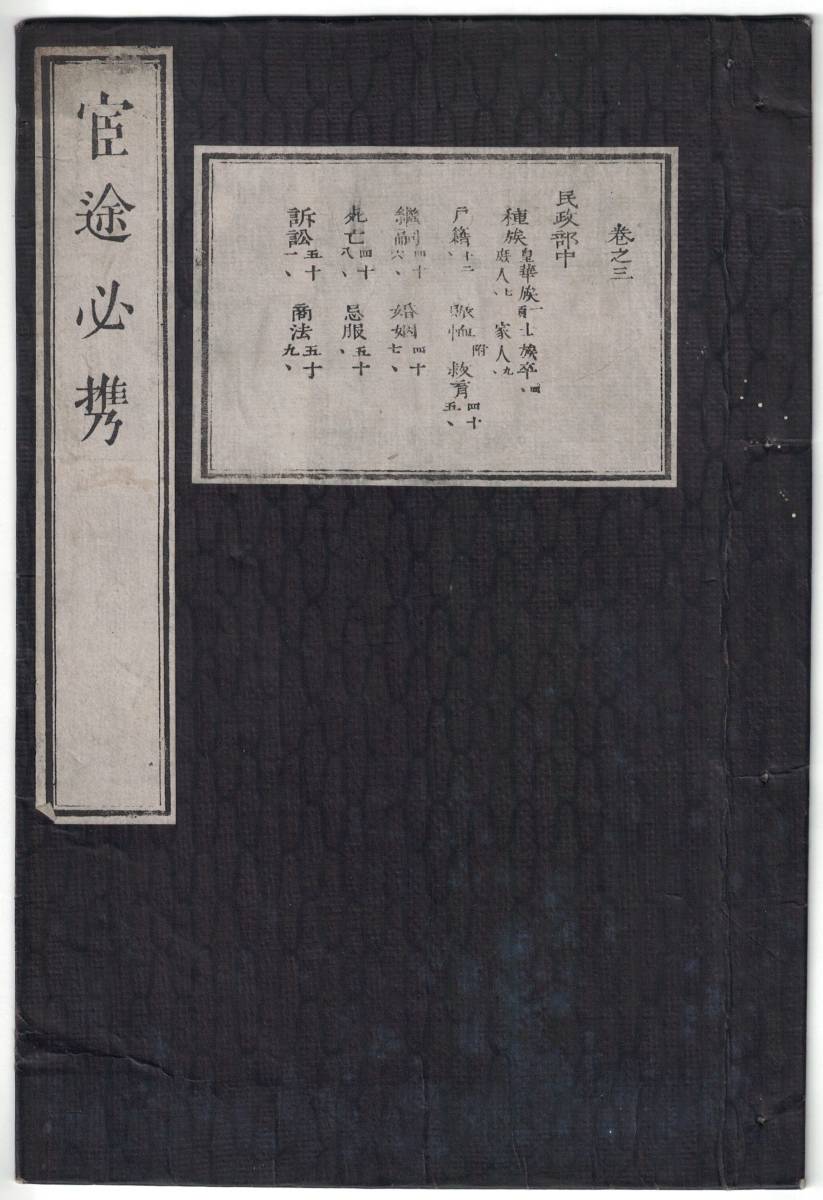 宦途必携
巻之三
民政部中
種族 皇華族一頁 士族卒、四
庶人、七 家人、九
戸籍、十二 賑恤 附 救育 四十五、
継嗣 四十六、 婚姻 四十七、
死亡 四十八、 忌服 五十、
訴訟 五十一、 商法 五十九、